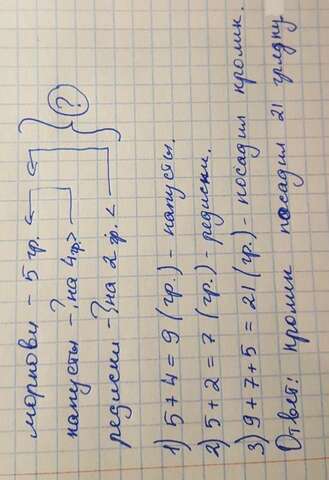 моркови - 5 гр.
капусты - ?, на 4 гр. >
редиски - ? на 2 гр. <
?
1) 5 + 4 = 9 (гр.) - капусты.
2) 5 + 2 = 7 (гр.) - редиски.
3) 9 + 7 + 5 = 21 (гр.) - посадил кролик.
Ответ: кролик посадил 21 грядку